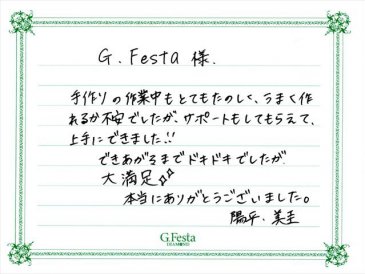 G.Festa 様.
手作りの作業中もとてもたのしく、うまく作
れるか不安でしたが、サポートもしてもらえて、
上手にできました!!
できあがるまでドキドキでしたが
大満足✨
本当にありがとうございました。
陽平・美圭
G.Festa
DIAMOND